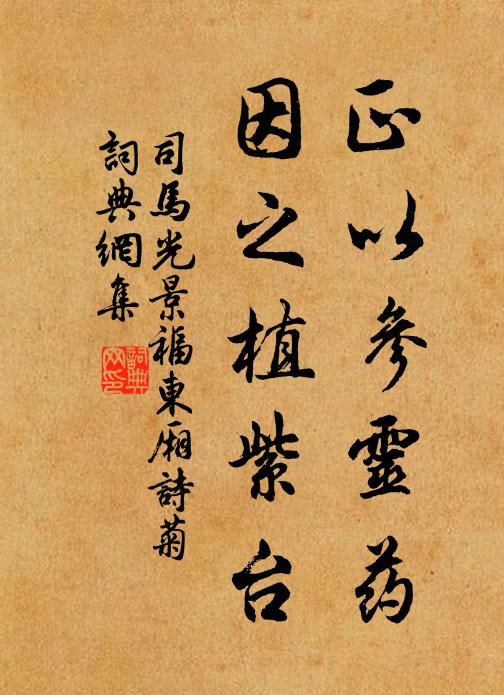 正以參靈药
因之植紫台
司馬光景福東厢詩菊
詞典網集
詞典網印